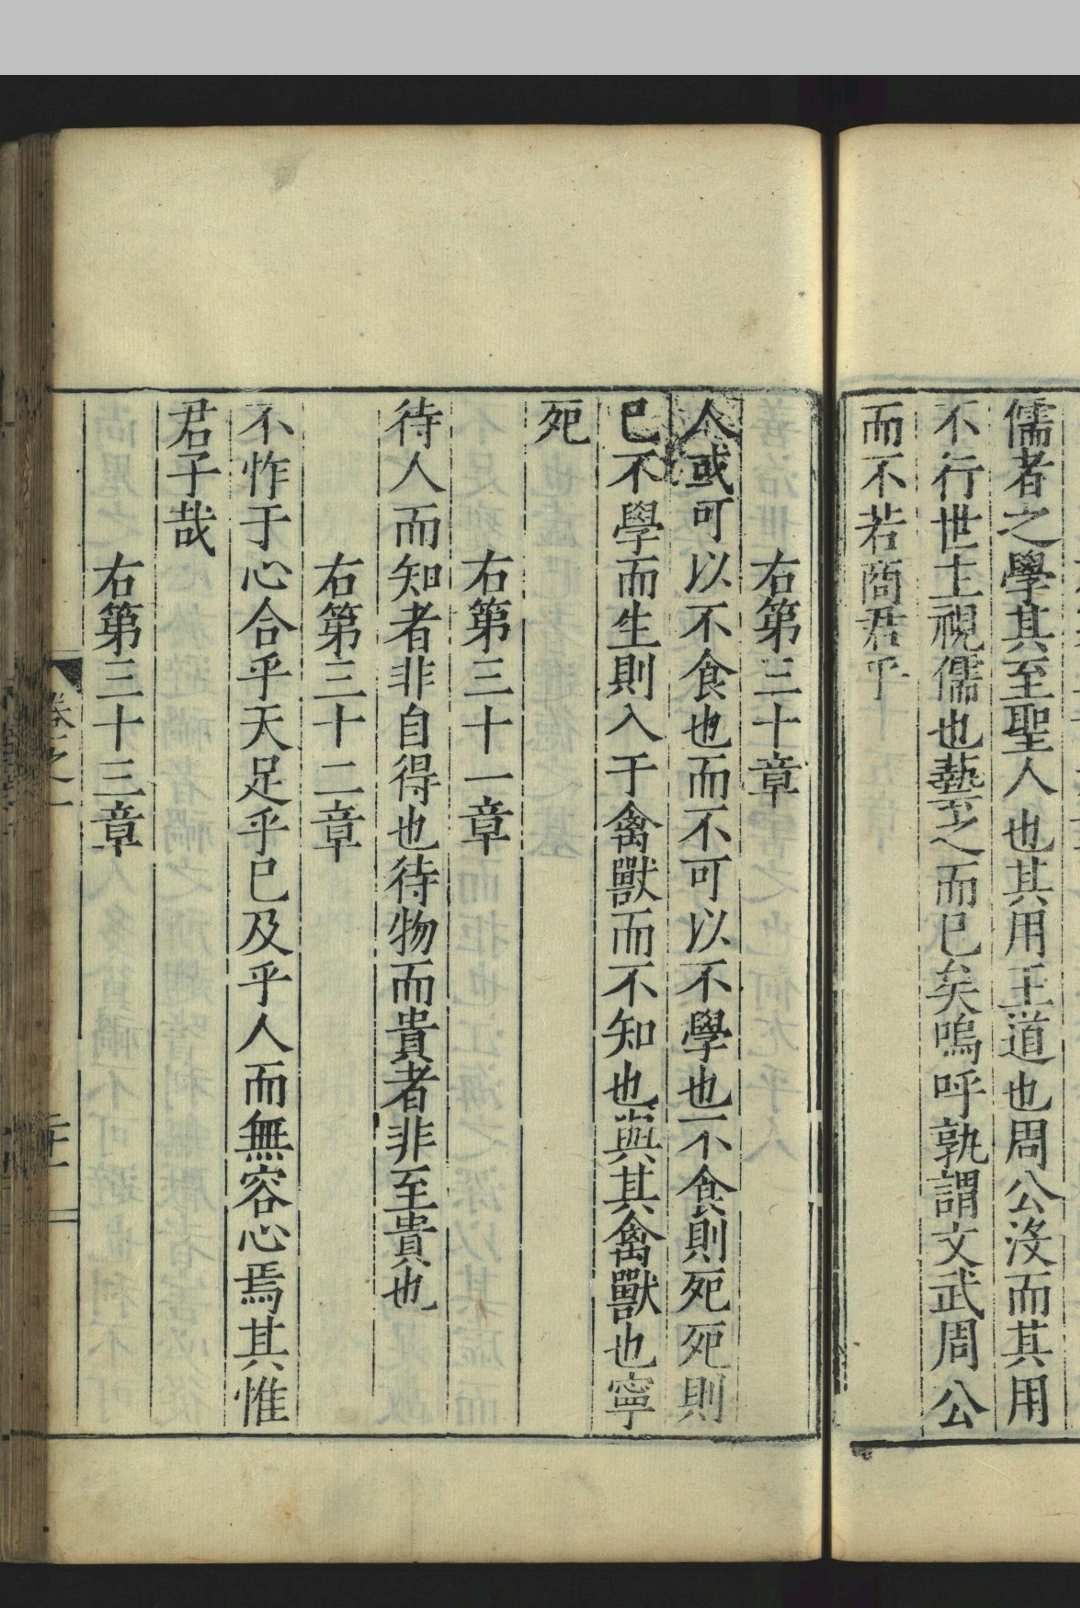 儒者之學其至聖人也其用王道也周公沒而其用
不行世主視儒也藝之而已矣嗚呼孰謂文武周公
而不若商君乎
右第三十章
人或可以不食也而不可以不學也不食則死死則
已不學而生則入于禽獸而不知也與其禽獸也寧
死
右第三十一章
待人而知者非自得也待物而貴者非至貴也
右第三十二章
不怍于心合乎天足乎已及乎人而無容心焉其惟
君子哉
右第三十三章
卷之一